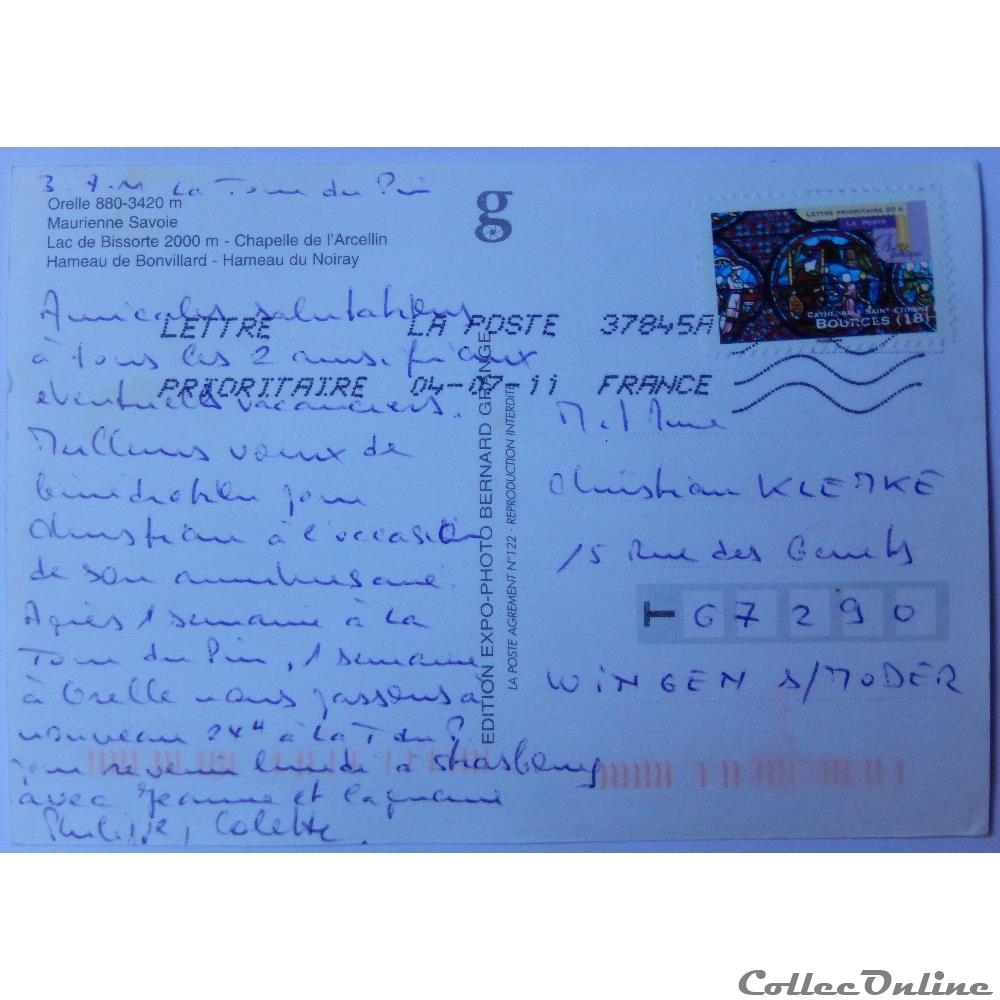 3.7.11 La Tour du Pin
Orelle 880-3420 m
Maurienne Savoie
Lac de Bissorte 2000 m - Chapelle de l'Arcellin
Hameau de Bonvillard - Hameau du Noiray
g
LETTRE PRIORITAIRE 20 g
LA POSTE
CATHEDRALE SAINT-ETIENNE
BOURGES (18)
LETTRE LA POSTE 37845A
PRIORITAIRE 04-07-11 FRANCE
Amicales salutations
à tous les 2 ainsi qu'aux
éventuels vacanciers.
Meilleurs voeux de
bénédiction pour
Christian à l'occasion
de son anniversaire.
Après 1 semaine à La
Tour du Pin, 1 semaine
à Orelle nous passons à
nouveau 24H à La T du P.
pour revenir lundi à Strasbourg
avec Jeanne et
Philippe, Colette.
EDITION EXPO-PHOTO BERNARD GRANGE
LA POSTE AGREMENT N°122 - REPRODUCTION INTERDITE
M et Mme
Christian KLEMKE
15 Rue des Genêts
T 67290
WINGEN S/MODER
CollecOnline